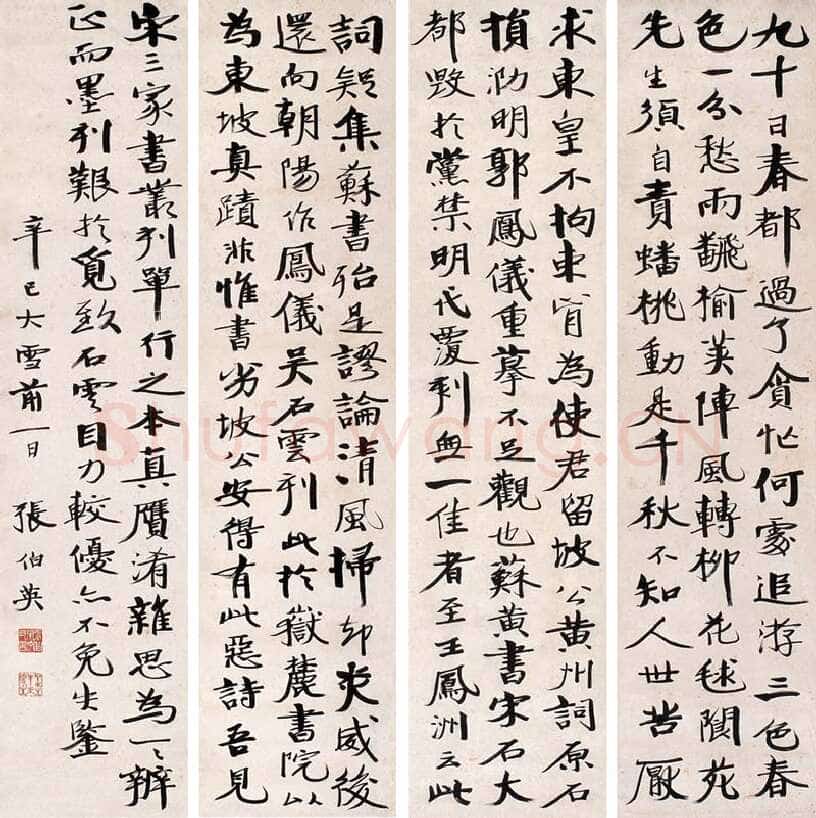 九十日春都過了貪忙何處追游三色春
色一分愁雨飜榆莢陣風轉柳花毬閬苑
先生須自責蟠桃動是千秋不知人世苦厭
求東皇不拘束肯為使君留坡公黃州詞原石
損泐明郭鳳儀重摹不足觀也蘇黃書宋石大
都毀於黨禁明代覆刊無一佳者至王鳳洲云此
詞疑集蘇書殆是謬論清風掃却炎威後
還向朝陽作鳳儀吳石雲刊此於嶽麓書院以
為東坡真蹟非惟書劣坡公安得有此惡詩吾見
宋三家書叢刊單行之本真贗淆雜思為一一辨
正而墨刊艱於覓致石雲目力較優亦不免失鑒
辛巳大雪前一日 張伯英
Shufawang.CN